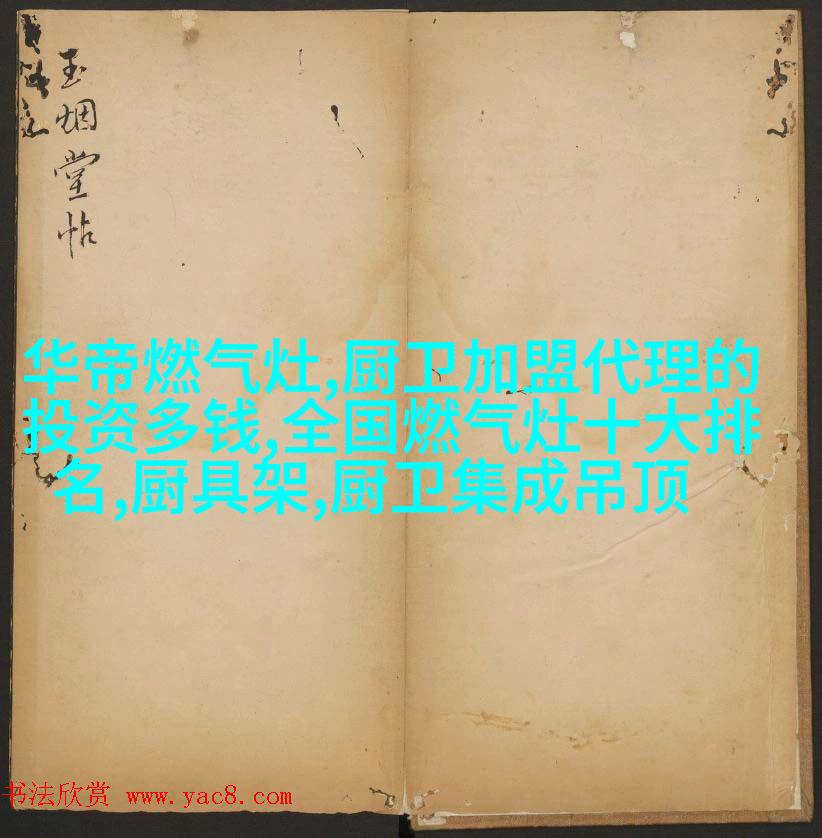 玉烟堂帖
华帝燃气灶,厨卫加盟代理的
投资多钱,全国燃气灶十大排
名,厨具架,厨卫集成吊顶
书法欣赏 www.yac8.com